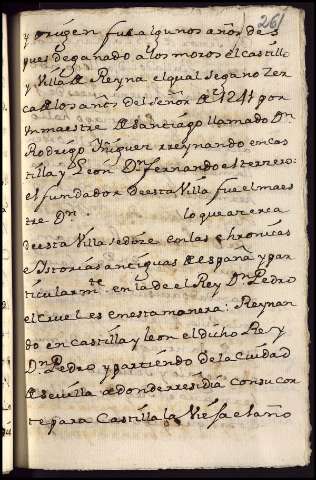 261
y origen fue algunos años des
pues de ganado a los moros el castillo
y Villa de Reyna el qual se gano zer
ca de los años del señor de 1241 por
un maestre de santiago llamado Dn
Rodrigo Yñiguez rreynando en cas
tilla y Leon Dn fernando el terzero:
el fundador de esta Villa fue el maes
tre Dn lo que a cerca
de esta Villa se dize en las chronicas
e Istorias antiguas de españa y par
ticularmte en la de el Rey Dn Pedro
el Cruel es en esta manera. Reynan
do en Castilla y leon el dicho Rey
Dn Pedro y partiendo de la Ciudad
de sevilla a donde rresidia con su cor
te para Castilla la Vieja el año